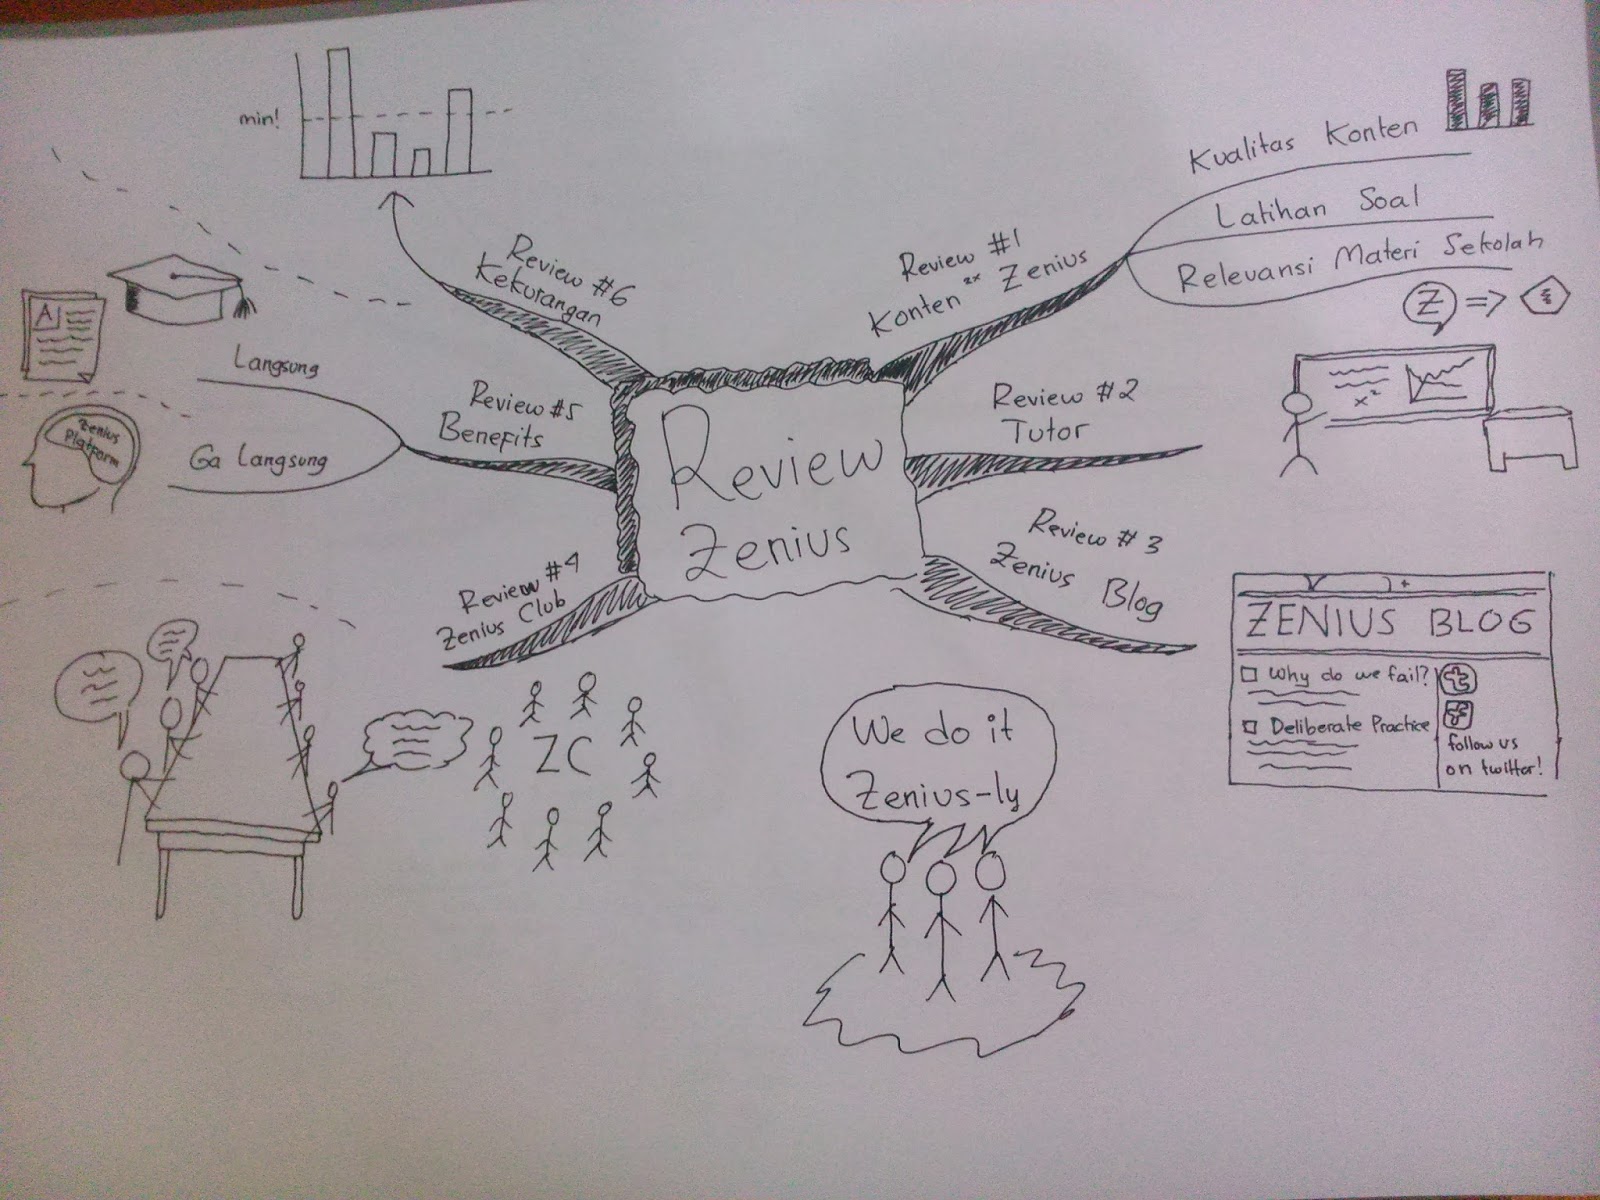 Review
Zenius
Review #1
Konten Zenius
Kualitas Konten
Latihan Soal
Relevansi Materi Sekolah
Z =>
Review #2
Tutor
x²
Review #3
Zenius Blog
ZENIUS BLOG
Why do we fail?
Deliberate Practice
t
f
follow us
on twitter!
Review #4
Zenius Club
ZC
Review #5
Benefits
Langsung
Ga Langsung
A
Zenius
Platform
Review #6
Kekurangan
min!
We do it
Zenius-ly